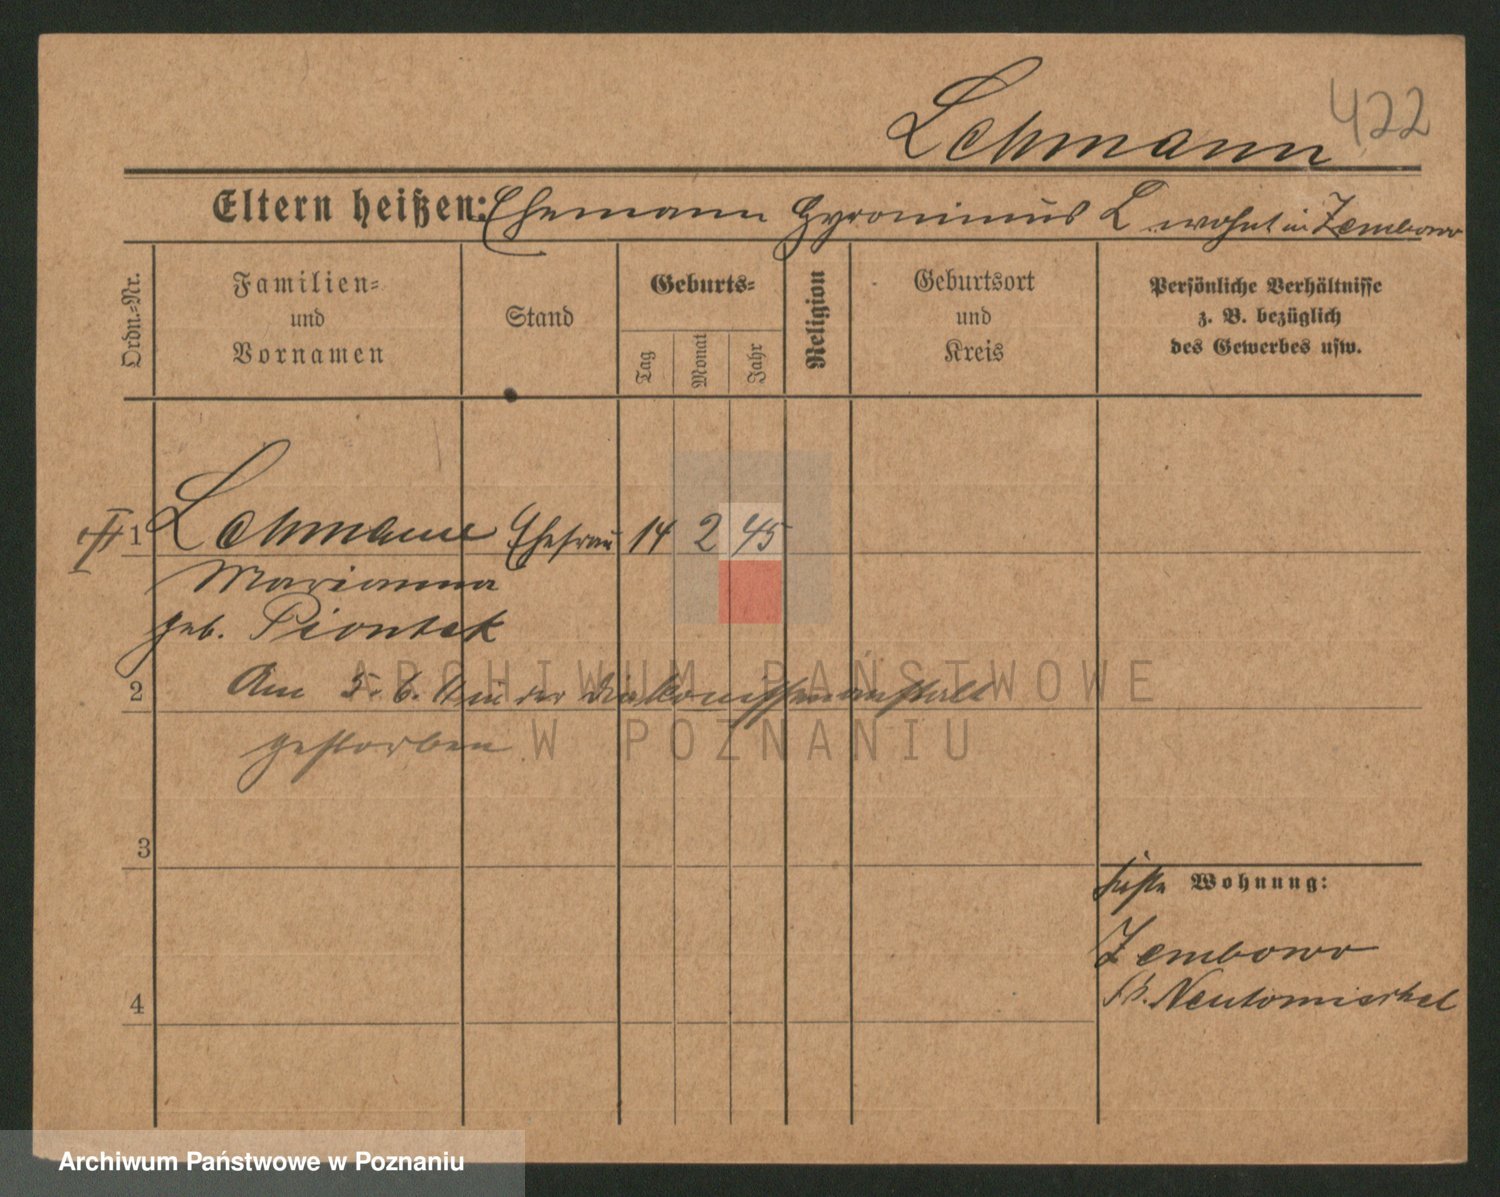 422
Lehmann
Eltern heißen: Ehemann Hyronimus L wohnt in Zembowo
Ordn.-Nr.
Familien-
und
Vornamen
Stand
Geburts-
Tag
Monat
Jahr
Religion
Geburtsort
und
Kreis
Persönliche Verhältnisse
z. B. bezüglich
des Gewerbes usw.
1 Lehmann Ehefrau 14 2 45
Marianna
geb. Piontek
2 Am 5. 6. 11 in der Diakonissenanstalt
gestorben
3
Wohnung:
Zembowo
Kr. Neutomischel
4
ARCHIWUM PAŃSTWOWE
W POZNANIU
Archiwum Państwowe w Poznaniu